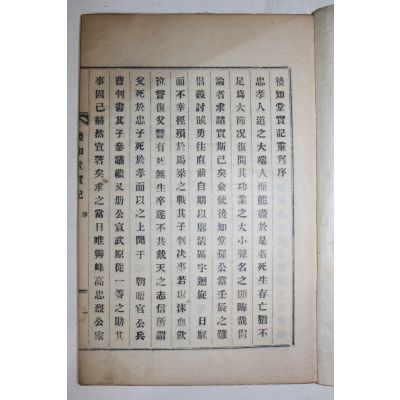 後知堂實記重刊序
忠孝人道之大端人而能盡於是者死生存亡猶不
足爲大節况復問其功業之大小聲名之顯晦哉嘗
論者求諸實斯已矣僉使後知堂孫公當壬辰之難
倡義討賊勇往直前自期以廓淸區宇廻旋 日馭
而不幸徑殞於馬梁之戰其子判决事若虛沫血飮
泣誓復有死無生卒遂不共戴天之志信所謂
父死於忠子死於孝而以之上聞于 朝贈官公兵
曹判書其子參議繼又册公宣武原從一等之勛其
事固已赫然宣著矣求之當日唯霽峰高忠烈公家
後知堂實記 序